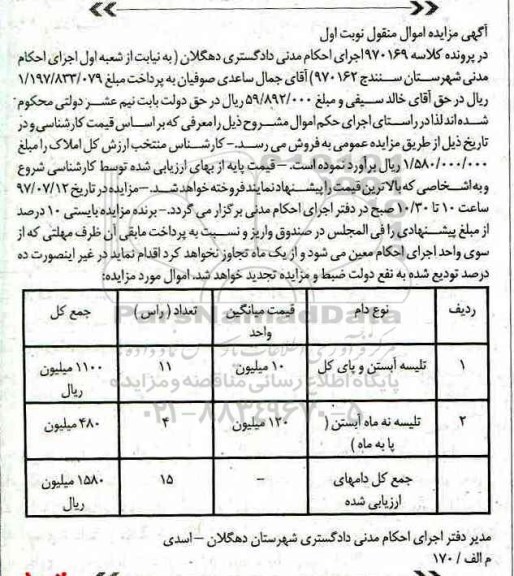 آگهی مزایده اموال منقول نوبت اول
در پرونده کلاسه ۹۷۰۱۶۹ اجرای احکام مدنی دادگستری دهگلان ( به نیابت از شعبه اول اجرای احکام
مدنی شهرستان سنندج ۹۷۰۱۶۲) آقای جمال ساعدی صوفیان به پرداخت مبلغ ۱/۱۹۷/۸۳۳/۰۷۹
ریال در حق آقای خالد سیفی و مبلغ ۵۹/۸۹۲/۰۰۰ ریال در حق دولت بابت نیم عشر دولتی محکوم
شده اند لذا در راستای اجرای حکم اموال مشروح ذیل را معرفی که بر اساس قیمت کارشناسی و در
تاریخ ذیل از طریق مزایده عمومی به فروش می رسد.– کارشناس منتخب ارزش کل املاک را مبلغ
۱/۵۸۰/۰۰۰/۰۰۰ ریال برآورد نموده است. – قیمت پایه از بهای ارزیابی شده توسط کارشناسی شروع
و به اشخاصی که بالاترین قیمت را پیشنهاد نمایند فروخته خواهد شد.– مزایده در تاریخ ۹۷/۰۷/۱۲
ساعت ۱۰ تا ۱۰/۳۰ صبح در دفتر اجرای احکام مدنی برگزار می گردد.– برنده مزایده بایستی ۱۰ درصد
از مبلغ پیشنهادی را فی المجلس در صندوق واریز و نسبت به پرداخت مابقی آن ظرف مهلتی که از
سوی واحد اجرای احکام معین می شود و از یک ماه تجاوز نخواهد کرد اقدام نماید در غیر اینصورت ده
درصد تودیع شده به نفع دولت ضبط و مزایده تجدید خواهد شد. اموال مورد مزایده:
ردیف نوع دام قیمت میانگین واحد تعداد ( راس ) جمع کل
۱ تلیسه آبستن و پای کل ۱۰ میلیون ۱۱ ۱۱۰۰ میلیون ریال
۲ تلیسه نه ماه آبستن ( پا به ماه ) ۱۲۰ میلیون ۴ ۴۸۰ میلیون
جمع کل دامهای ارزیابی شده – ۱۵ ۱۵۸۰ میلیون ریال
ParsNamadData
پایگاه اطلاع رسانی مناقصه و مزایده
۰۲۱-۸۸۳۴۹۶۷۰-۵
مدیر دفتر اجرای احکام مدنی دادگستری شهرستان دهگلان – اسدی
م الف / ۱۷۰